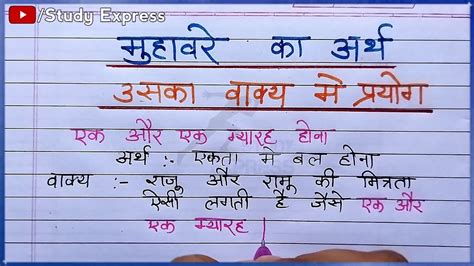 /Study Express
मुहावरे का अर्थ
उसका वाक्य मे प्रयोग
एक और एक ग्यारह होना
अर्थ :- एकता मे बल होना
वाक्य :- राजू और रामू की मित्रता
ऐसी लगती है जैसे एक और
एक ग्यारह